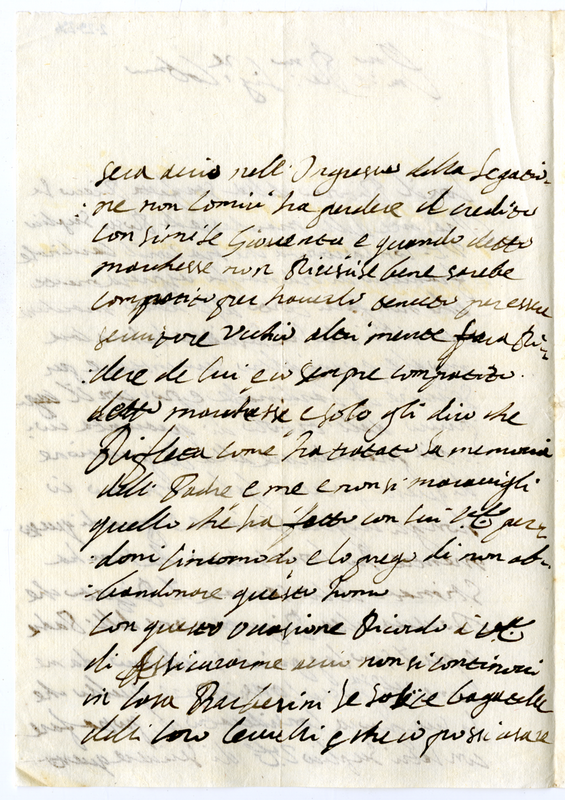 sera acciò nell' Ingresso della Legatio-
ne non Cominci ha perdere il credito
con simile Gioventu e quando detto
marchesse non Riesisse bene sarebe
compatito per haverlo tenuto per essere
servitore Vechio altri mente fara Ri-
dere de lui e io sempre compatito
detto marchesse e solo gli dico che
Rifleta come ha tratato la memoria
dell Padre e me e non si maravigli
quello che ha fatto con lui
doni l'incomodo e lo prego di non ab-
bandonare questo
Con questo ocasione Ricordo a
di Assicurarme acciò non si continovi
in Casa Barberini le solite bagatelle
delli loro e che io possi usare